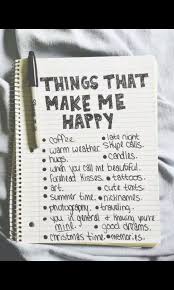 THINGS THAT
MAKE ME
HAPPY
• coffee.
• warm weather
• hugs.
• when you call me beautiful.
• forehead kisses.
• art.
• summer time.
• photography.
• you in general & knowing you're
mine.
• christmas time.
• late night
skype calls.
• candles.
• tattoos.
• cute texts.
• nicknames.
• traveling.
• good downs.
• memories.